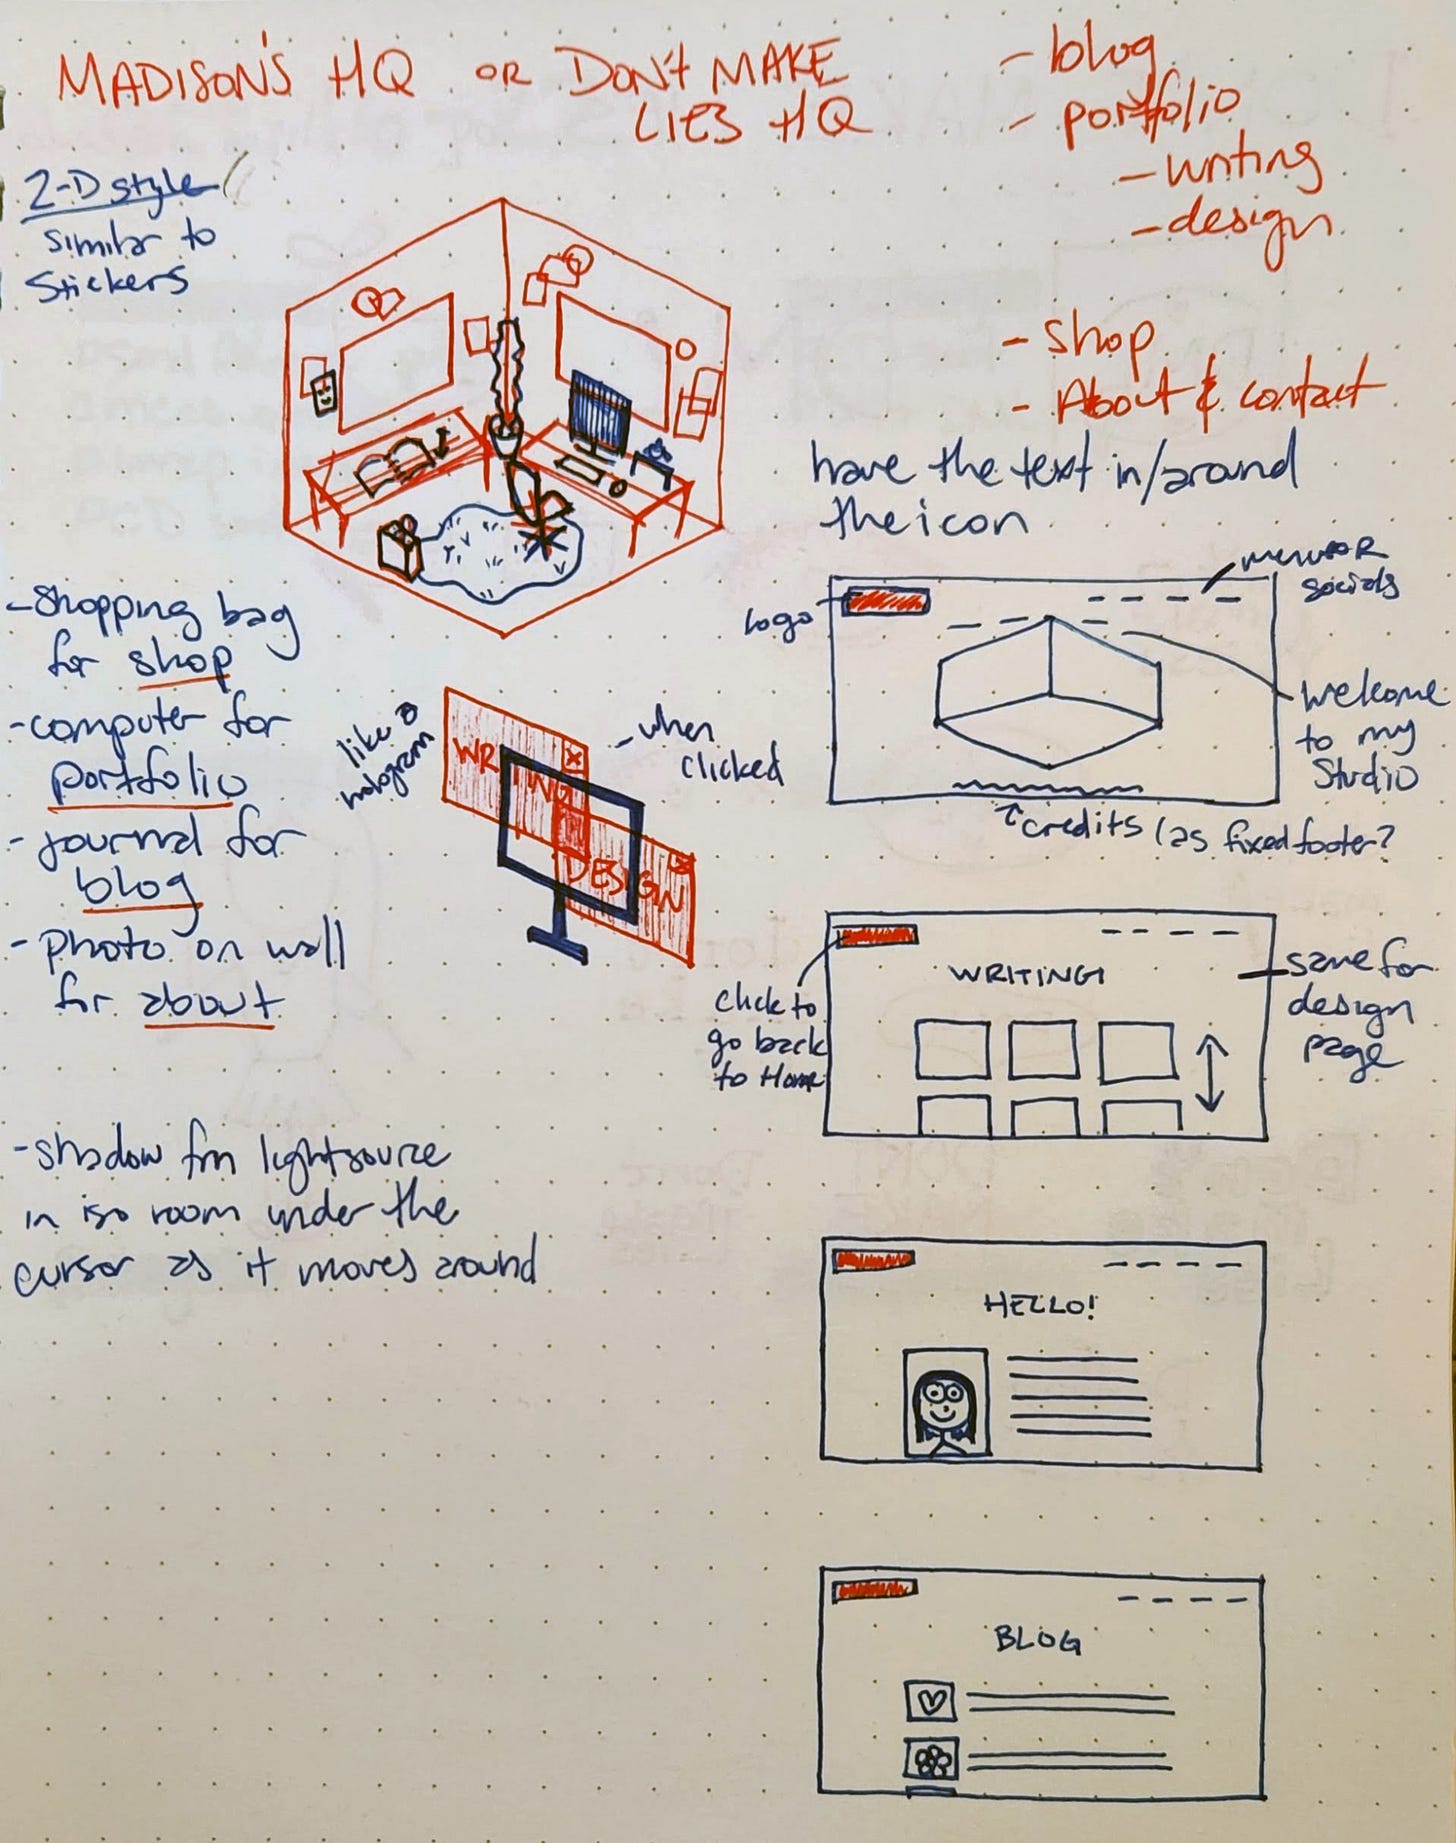 MADISON'S HQ OR DON'T MAKE
LIES HQ
- blog
- portfolio
- writing
- design
- shop
- About & contact
2-D style/
similar to
stickers
have the text in/around
the icon
logo
menu OR
socials
welcome
to my
studio
credits (as fixed footer?
- shopping bag
for shop
- computer for
portfolio
- journal for
blog
- photo on wall
for about
like a
hologram
WRITING
X
DESIGN
X
- when
clicked
WRITING
click to
go back
to Home
same for
design
page
- shadow fm lightsource
in iso room under the
cursor as it moves around
HELLO!
BLOG